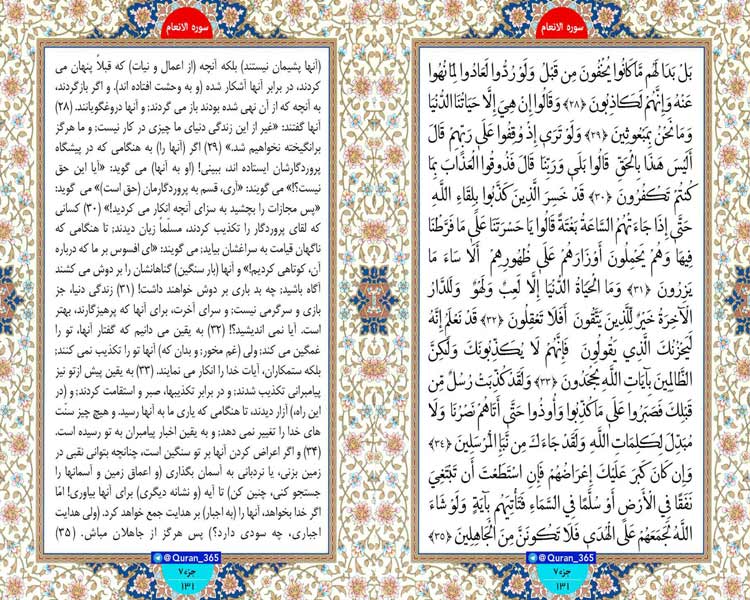 سوره الانعام
بَلْ بَدَا لَهُم مَّا كَانُوا يُخْفُونَ مِن قَبْلُ وَلَوْ رُدُّوا لَعَادُوا لِمَا نُهُوا
عَنْهُ وَإِنَّهُمْ لَكَاذِبُونَ ﴿۲۸﴾ وَقَالُوا إِنْ هِيَ إِلَّا حَيَاتُنَا الدُّنْيَا
وَمَا نَحْنُ بِمَبْعُوثِينَ ﴿۲۹﴾ وَلَوْ تَرَى إِذْ وُقِفُوا عَلَى رَبِّهِمْ قَالَ
أَلَيْسَ هَذَا بِالْحَقِّ قَالُوا بَلَى وَرَبِّنَا قَالَ فَذُوقُوا الْعَذَابَ بِمَا
كُنتُمْ تَكْفُرُونَ ﴿۳۰﴾ قَدْ خَسِرَ الَّذِينَ كَذَّبُوا بِلِقَاءِ اللَّهِ
حَتَّى إِذَا جَاءَتْهُمُ السَّاعَةُ بَغْتَةً قَالُوا يَا حَسْرَتَنَا عَلَى مَا فَرَّطْنَا
فِيهَا وَهُمْ يَحْمِلُونَ أَوْزَارَهُمْ عَلَى ظُهُورِهِمْ أَلَا سَاءَ مَا
يَزِرُونَ ﴿۳۱﴾ وَمَا الْحَيَاةُ الدُّنْيَا إِلَّا لَعِبٌ وَلَهْوٌ وَلَلدَّارُ
الْآخِرَةُ خَيْرٌ لِّلَّذِينَ يَتَّقُونَ أَفَلَا تَعْقِلُونَ ﴿۳۲﴾ قَدْ نَعْلَمُ إِنَّهُ
لَيَحْزُنُكَ الَّذِي يَقُولُونَ فَإِنَّهُمْ لَا يُكَذِّبُونَكَ وَلَكِنَّ
الظَّالِمِينَ بِآيَاتِ اللَّهِ يَجْحَدُونَ ﴿۳۳﴾ وَلَقَدْ كُذِّبَتْ رُسُلٌ مِّن
قَبْلِكَ فَصَبَرُوا عَلَى مَا كُذِّبُوا وَأُوذُوا حَتَّى أَتَاهُمْ نَصْرُنَا وَلَا
مُبَدِّلَ لِكَلِمَاتِ اللَّهِ وَلَقَدْ جَاءَكَ مِن نَّبَإِ الْمُرْسَلِينَ ﴿۳۴﴾
وَإِن كَانَ كَبُرَ عَلَيْكَ إِعْرَاضُهُمْ فَإِنِ اسْتَطَعْتَ أَن تَبْتَغِيَ
نَفَقًا فِي الْأَرْضِ أَوْ سُلَّمًا فِي السَّمَاءِ فَتَأْتِيَهُم بِآيَةٍ وَلَوْ شَاءَ
اللَّهُ لَجَمَعَهُمْ عَلَى الْهُدَى فَلَا تَكُونَنَّ مِنَ الْجَاهِلِينَ ﴿۳۵﴾
@Quran_365
جزء ۷
۱۳۱
سوره الانعام
(آنها پشیمان نیستند) بلکه آنچه (از اعمال و نیات) که قبلاً پنهان می
کردند، در برابر آنها آشکار شده (و به وحشت افتاده اند). و اگر بازگردند،
به آنچه که از آن نهی شده بودند باز می گردند؛ و آنها دروغگویانند. (۲۸)
آنها گفتند: «غیر از این زندگی دنیای ما چیزی در کار نیست؛ و ما هرگز
برانگیخته نخواهیم شد.» (۲۹) اگر (آنها را) به هنگامی که در پیشگاه
پروردگارشان ایستاده اند، ببینی! (او به آنها) می گوید: «آیا این حق
نیست؟!» می گویند: «آری، قسم به پروردگارمان (حق است)» می گوید:
«پس مجازات را بچشید به سزای آنچه انکار می کردید!» (۳۰) کسانی
که لقای پروردگار را تکذیب کردند، مسلّماً زیان دیدند؛ تا هنگامی که
ناگهان قیامت به سراغشان بیاید؛ می گویند: «ای افسوس بر ما که درباره
آن، کوتاهی کردیم!» و آنها (بار سنگین) گناهانشان را بر دوش می کشند
آگاه باشید؛ چه بد باری بر دوش خواهند داشت! (۳۱) زندگی دنیا، جز
بازی و سرگرمی نیست؛ و سرای آخرت، برای آنها که پرهیزگارند، بهتر
است. آیا نمی اندیشید؟! (۳۲) به یقین می دانیم که گفتار آنها، تو را
غمگین می کند؛ ولی (غم مخور؛ و بدان که) آنها تو را تکذیب نمی کنند؛
بلکه ستمکاران، آیات خدا را انکار می نمایند. (۳۳) به یقین پیش ازتو نیز
پیامبرانی تکذیب شدند؛ و در برابر تکذیبها، صبر و استقامت کردند؛ و (در
این راه)، آزار دیدند، تا هنگامی که یاری ما به آنها رسید. و هیچ چیز سنّت
های خدا را تغییر نمی دهد؛ و به یقین اخبار پیامبران به تو رسیده است.
(۳۴) و اگر اعراض کردن آنها بر تو سنگین است، چنانچه بتوانی نقبی در
زمین بزنی، یا نردبانی به آسمان بگذاری (و اعماق زمین و آسمانها را
جستجو کنی، چنین کن) تا آیه (و نشانه دیگری) برای آنها بیاوری! امّا
اگر خدا بخواهد، آنها را (به اجبار) بر هدایت جمع خواهد کرد. (ولی هدایت
اجباری، چه سودی دارد؟) پس هرگز از جاهلان مباش. (۳۵)
@Quran_365
جزء ۷
۱۳۱